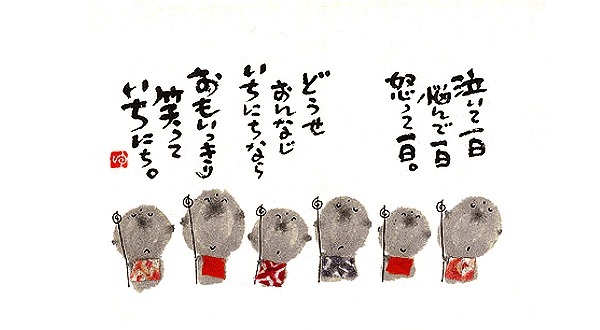 泣いて一日
悩んで一日
怒って一日。
どうせ
おんなじ
いちにちなら
おもいっきり
笑って
いちにち。
ゆ